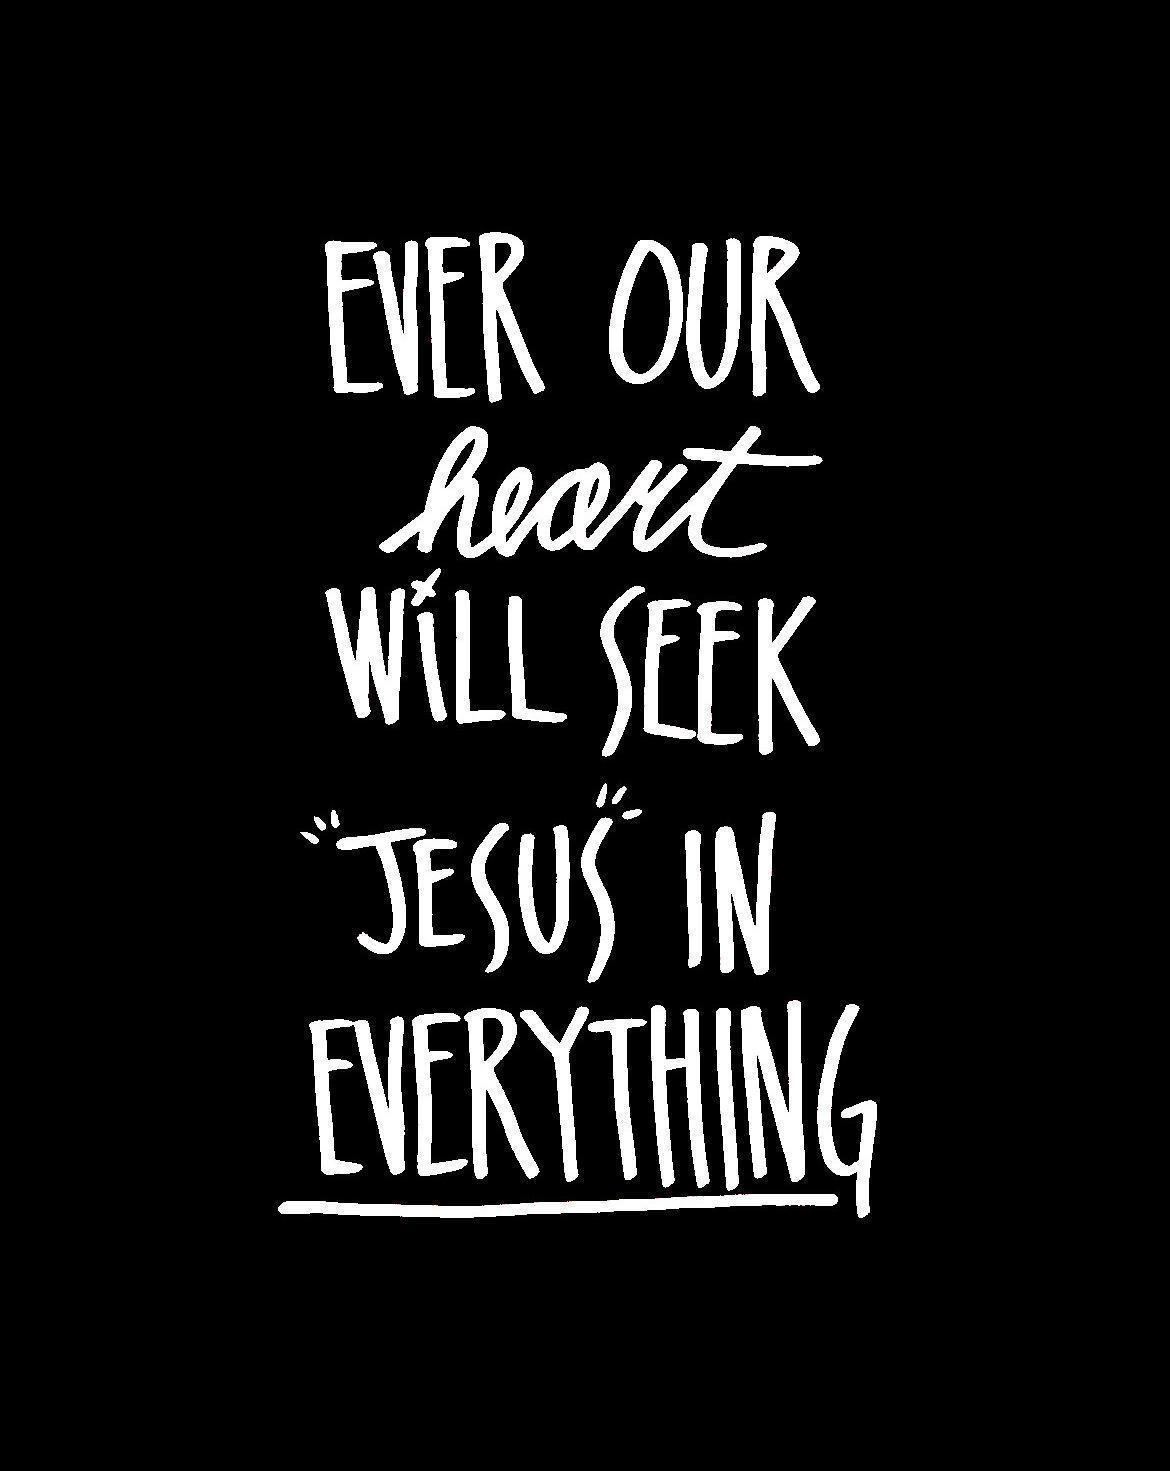 EVER OUR
heart
WiLL SEEK
"JESUS" IN
EVERYTHING